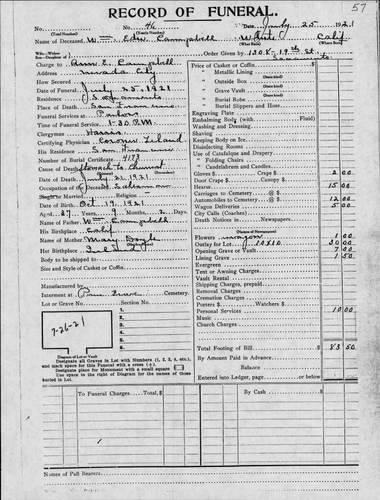 57
RECORD OF FUNERAL.
No. (Yearly Number) July 25 1921
Name of Deceased Wm Edw. Campbell White Calif
(What Race) (Where Born)
Charge to Ann E. Campbell Order Given by 1308-19th St.
Address Nevada City Sacramento
How Secured Price of Casket or Coffin
Date of Funeral July 25, 1921 " Metallic Lining
Residence Sacramento " Outside Box
Place of Death San Francisco " Grave Vault
Funeral Services at Parlors " Burial Robe
Time of Funeral Service 1:30 P.M. " Burial Slippers and Hose
Clergyman Harris Engraving Plate
Certifying Physician Coroner Leland Embalming Body (with Fluid)
His Residence San Francisco Washing and Dressing
Number of Burial Certificate 4173 Shaving
Cause of Death Keeping Body on Ice
Date of Death July 21 1921 Disinfecting Rooms
Occupation of the Deceased Salesman Use of Catafalque and Drapery
Single or Married Religion " Folding Chairs
Date of Birth Oct. 19, 1921 " Candelabrum and Candles
Aged 27 Years 9 Months 2 Days Gloves $ Crape $ 2 00
Name of Father Wm Campbell Door Crape $ Canopy $
His Birthplace Calif Hearse 15 00
Name of Mother Mary Doyle Carriages to Cemetery @ $
Her Birthplace Automobiles to Cemetery @ $ 12 00
Body to be shipped to Wagon Deliveries 5 00
Size and Style of Casket or Coffin City Calls (Coaches)
Death Notices in Newspapers
(Names of Newspapers)
Flowers 1 00
Outlay for Lot 10x10 30 00
Opening Grave or Vault 7 00
Lining Grave 1 50
Evergreen
Tent or Awning Charges
Vault Rental
Shipping Charges, prepaid
Removal Charges
Cremation Charges
Manufactured by Porters $ Watchers $
Interment at Pine Grove Cemetery. Personal Services 10 00
Lot or Grave No. Section No. Music
7-26-21 Church Charges
1
2
3
4
5
6
Diagram of Lot or Vault
Designate all Graves in Lot with Numbers (1, 2, 3, 4, etc.), and mark space for this Funeral with a cross (+)
Designate place for Monument with a small square □
Use space to the right of Diagram for the names of those buried in Lot.
Total Footing of Bill $ 83 50
By Amount Paid in Advance
Balance
Entered into Ledger, page or below.
To Funeral Charges, Total, $ By Cash $
Names of Pall Bearers